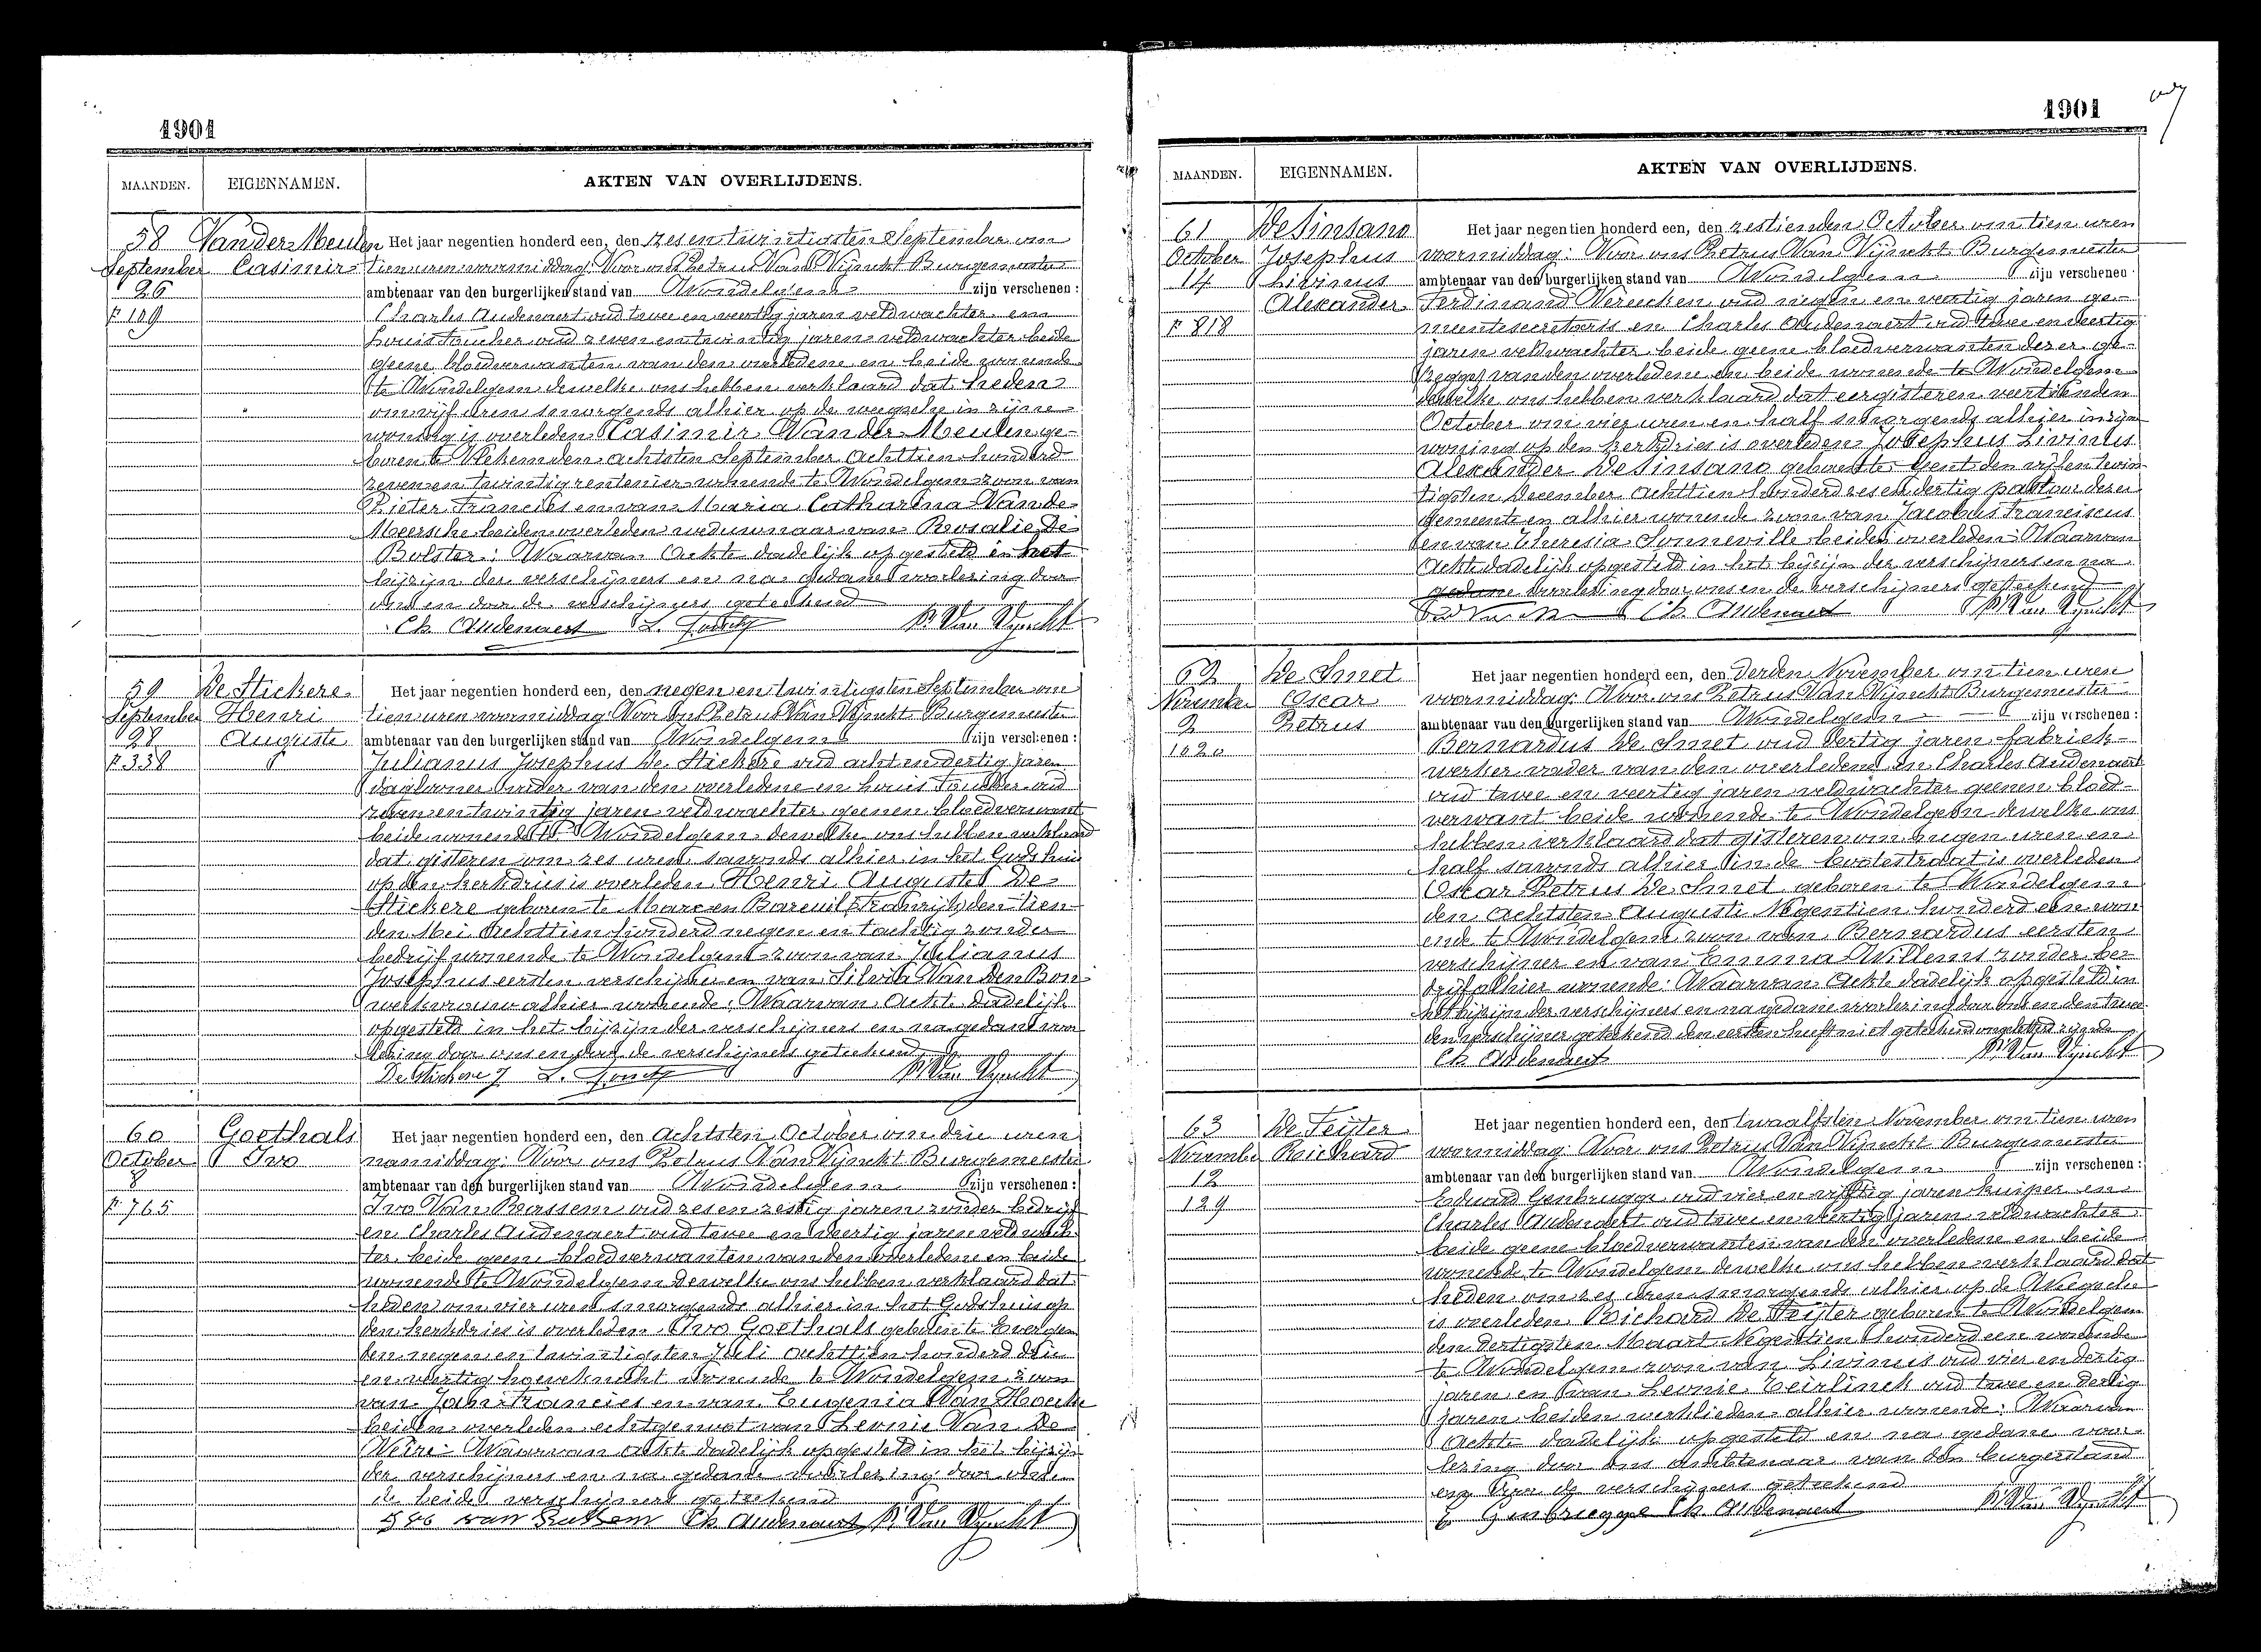 1901
MAANDEN. EIGENNAMEN. AKTEN VAN OVERLIJDENS.
58 Van der Meulen Het jaar negentien honderd een, den zes en twintigsten September om
September Casimir tien uren voormiddag: Voor ons Petrus Van Vijnckt Burgemeester
26 ambtenaar van den burgerlijken stand van Wondelgem zijn verschenen:
Charles Audenaert oud twee en veertig jaren veldwachter en
Louis oud zeven en twintig jaren veldwachter beide
geene bloedverwanten van den overledene en beide wonende
te Wondelgem dewelke ons hebben verklaard dat heden
om vijf uren smorgends alhier op de wegsche in zijne
woning is overleden Casimir Van der Meulen ge-
boren te den achtsten September achttien honderd
zeven en twintig rentenier wonende te Wondelgem zoon van
Pieter Francies en van Maria Catharina Van de
Meersche beiden overleden weduwnaar van Rosalie De
Bolster: Waarvan Ackte dadelijk opgesteld in het
bijzijn der verschijners en na gedane voorlezing door
ons en door de verschijners geteekend
Ch Audenaert L. P. Van Vynckt
59 De Stickere Het jaar negentien honderd een, den negen en twintigsten September om
September Henri tien uren voormiddag: Voor ons Petrus Van Vijnckt Burgemeester
28 Auguste ambtenaar van den burgerlijken stand van Wondelgem zijn verschenen:
F 338 Julianus Josephus De Stickere oud acht en dertig jaren
daglooner vader van den overledene en Louis oud
zeven en twintig jaren veldwachter geenen bloedverwant
beide wonende te Wondelgem dewelke ons hebben verklaard
dat gisteren om zes uren savonds alhier in het Godshuis
op den kerkdries is overleden Henri Auguste De
Stickere geboren te Marc en Bareuil (Frankrijk) den tien-
den Mei achttien honderd negen en tachtig zonder
bedrijf wonende te Wondelgem zoon van Julianus
Josephus eersten verschijner en van Silvia Van Den
werkvrouw alhier wonende: Waarvan Ackte dadelijk
opgesteld in het bijzijn der verschijners en na gedane voor
lezing door ons en door de verschijners geteekend
De Stickere J L. P. Van Vynckt
60 Goethals Het jaar negentien honderd een, den achtsten October om drie uren
October Ivo namiddag: Voor ons Petrus Van Vijnckt Burgemeester
8 ambtenaar van den burgerlijken stand van Wondelgem zijn verschenen:
F 765 Ivo Van Rassem oud zes en zestig jaren zonder bedrijf
en Charles Audenaert oud twee en veertig jaren veldwach-
ter beide geene bloedverwanten van den overledene en beide
wonende te Wondelgem dewelke ons hebben verklaard dat
heden om vier uren smorgends alhier in het Godshuis op
den kerkdries is overleden Ivo Goethals geboren te Evergem
den negen en twintigsten Juli achttien honderd drie
en veertig wonende te Wondelgem zoon
van Jan Francies en van Eugenia Van Hoecke
beiden overleden echtgenoot van Leonie Van De
Veire: Waarvan ackte dadelijk opgesteld in het bijzijn
der verschijners en na gedane voorlezing door ons en
de beide verschijners geteekend
Ivo van Rassem Ch Audenaert P. Van Vynckt
1901
MAANDEN. EIGENNAMEN. AKTEN VAN OVERLIJDENS.
61 De Sinsano Het jaar negentien honderd een, den zestienden October om tien uren
October Josephus voormiddag: Voor ons Petrus Van Vijnckt Burgemeester
14 Livinus ambtenaar van den burgerlijken stand van Wondelgem zijn verschenen:
Alexander Ferdinand Vereecken oud negen en veertig jaren ge-
F 818 meentesecretaris en Charles Audenaert oud twee en veertig
jaren veldwachter beide geene bloedverwanten dezer ge-
zegge van den overledene en beide wonende te Wondelgem
dewelke ons hebben verklaard dat eergisteren veertienden
October om vier uren en half smorgends alhier in zijn
woning op den kerkdries is overleden Josephus Livinus
Alexander De Sinsano geboren te Gent den vijf en twin-
tigsten December achttien honderd zes en dertig pastoor dezer
gemeente en alhier wonende zoon van Jacobus Franciscus
en van Theresia Sonneville beiden overleden: Waarvan
Ackte dadelijk opgesteld in het bijzijn der verschijners en na
gedane voorlezing door ons en de verschijners geteekend
Ch. Audenaert P. Van Vynckt
62 De Smet Het jaar negentien honderd een, den derden November om tien uren
November Oscar voormiddag: Voor ons Petrus Van Vijnckt Burgemeester
2 Petrus ambtenaar van den burgerlijken stand van Wondelgem zijn verschenen:
1020 Bernardus De Smet oud dertig jaren fabriek-
werker vader van den overledene en Charles Audenaert
oud twee en veertig jaren veldwachter geenen bloed-
verwant beide wonende te Wondelgem dewelke ons
hebben verklaard dat gisteren om negen uren en
half savonds alhier in de is overleden
Oscar Petrus De Smet geboren te Wondelgem
den achtsten Augusti Negentien honderd een won-
ende te Wondelgem zoon van Bernardus eersten
verschijner en van Emma Willems zonder be-
drijf alhier wonende: Waarvan Ackte dadelijk opgesteld in
het bijzijn der verschijners en na gedane voorlezing door ons en den twee
den verschijner geteekend den eersten heeft niet geteekend ongeletterd zijnde
Ch Audenaert P. Van Vynckt
63 De Feijter Het jaar negentien honderd een, den twaalfsten November om tien uren
November Richard voormiddag: Voor ons Petrus Van Vijnckt Burgemeester
12 ambtenaar van den burgerlijken stand van Wondelgem zijn verschenen:
129 Eduard Genbrugge oud vier en vijftig jaren kuiper en
Charles Audenaert oud twee en veertig jaren veldwachter
beide geene bloedverwanten van den overledene en beide
wonende te Wondelgem dewelke ons hebben verklaard dat
heden om zes uren smorgends alhier op de Wegsche
is overleden Richard De Feijter geboren te Wondelgem
den dertigsten Maart Negentien honderd een wonende
te Wondelgem zoon van Livinus oud vier en dertig
jaren en van Leonie Teirlinck oud twee en dertig
jaren beiden werklieden alhier wonende: Waarvan
Ackte dadelijk opgesteld en na gedane voor-
lezing door ons Ambtenaar van den burgerstand
en door de verschijners geteekend
E Genbrugge Ch. Audenaert P. Van Vynckt